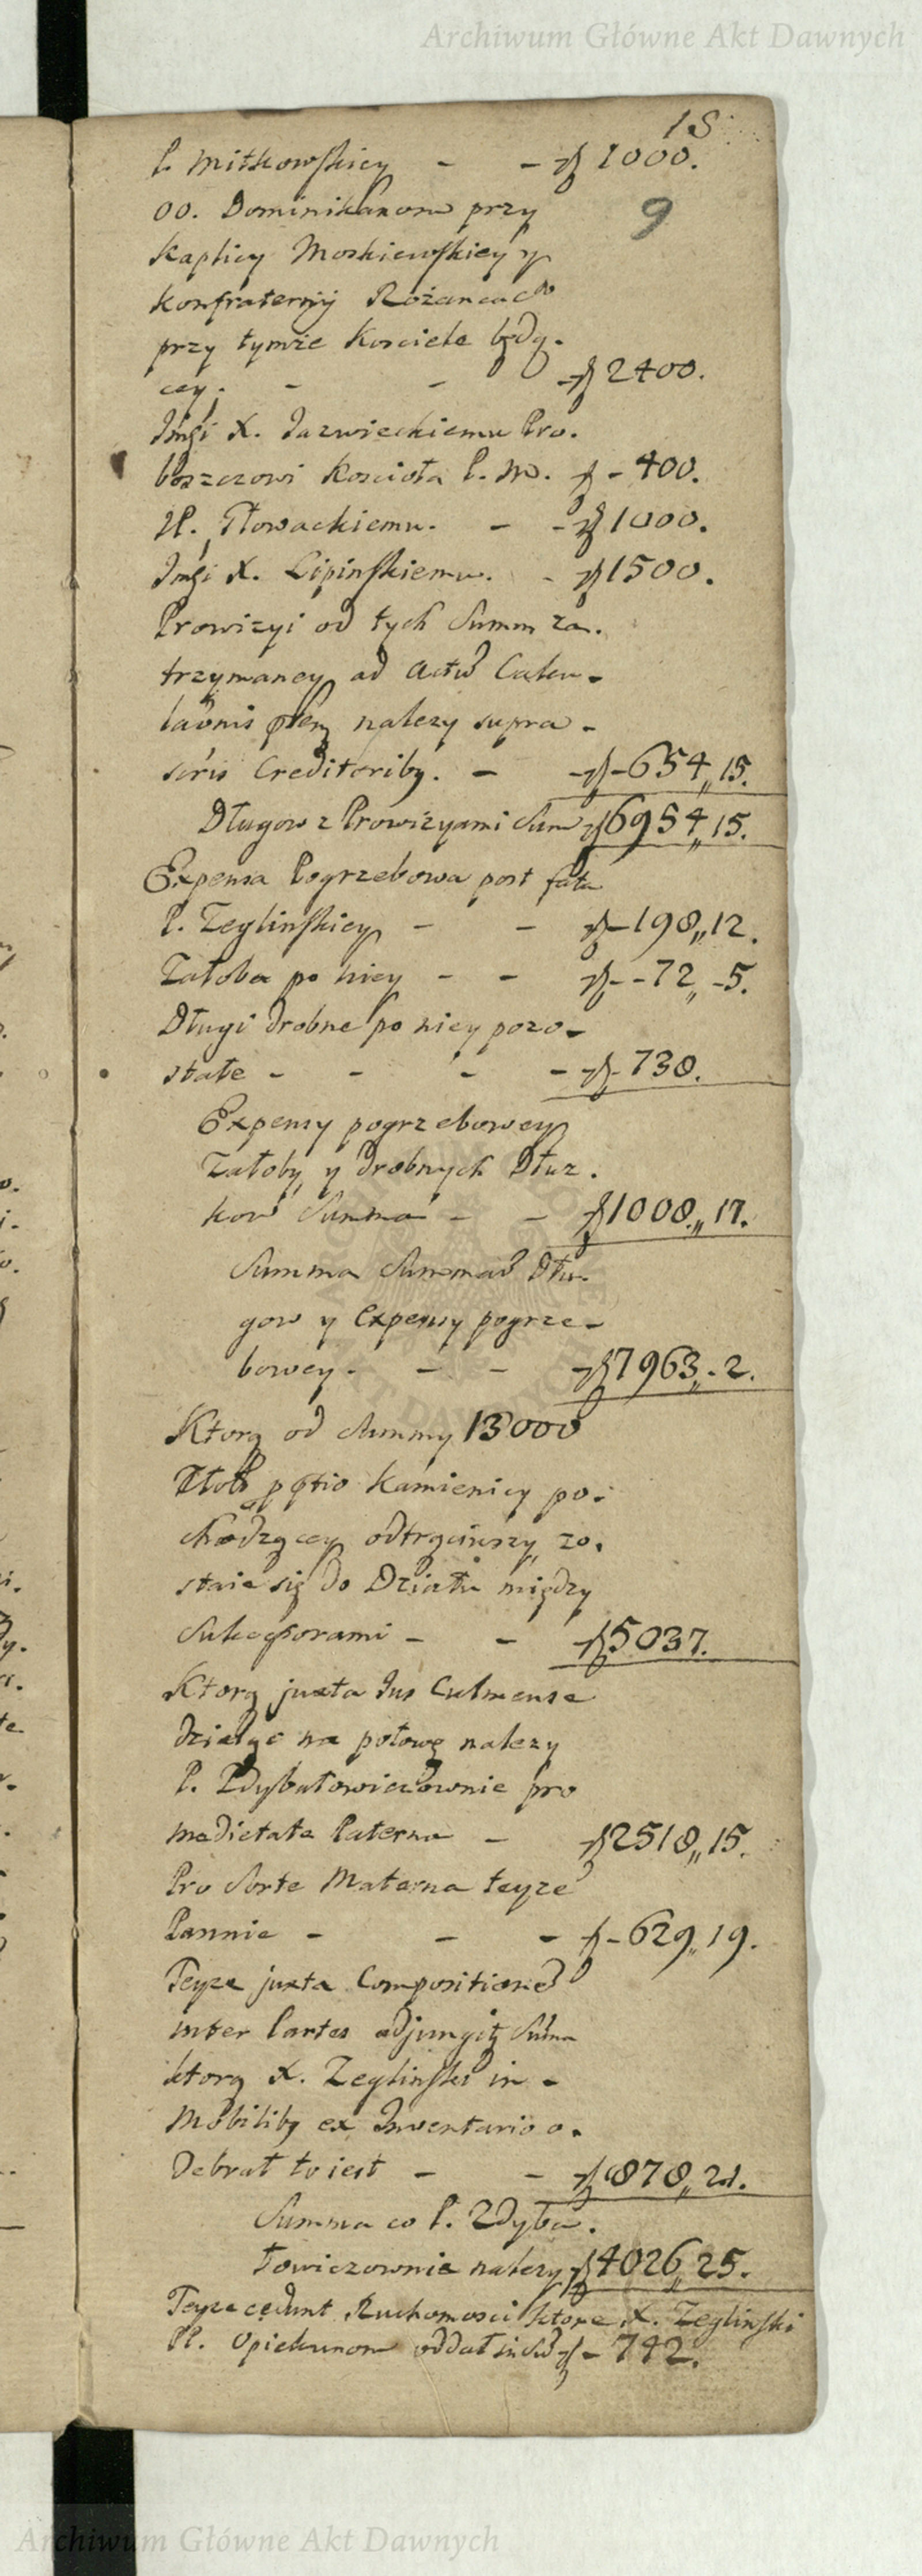 Archiwum Główne Akt Dawnych
15.
P. Mitkowskiey - - zł 1000.
9
OO. Dominikanom przy
Kaplicy Moskiewskiey y
konfraternij Rożancach
przy tymże Kosciele będą-
cey. - - zł 2400.
Jmśi X. Jazwieckiemu Pro-
boszczowi Koscioła P. M. zł - 400.
P. Słowackiemu. - - zł 1000.
Jmśi X. Lipinskiemu. - zł 1500.
Prowizyi od tych Summ za-
trzymaney ad Actum Calcu-
należy supra-
Creditoribus. - zł - 654,, 15.
Długow z Prowizyami Sum zł 6954,, 15.
Expensa Pogrzebowa post fata
P. Zeglinskiey - - zł - 198,, 12.
Załoba po niey - - zł - - 72,, - 5.
Długi drobne po niey pozo-
stałe - - - - zł - 738.
Expensy pogrzebowey
Załoby y drobnych Dłuz-
kow Summa - - zł 1008,, 17.
Summa Summar Dłu-
gow y Expensy pogrze-
bowey - - - zł 7963,, - 2.
Ktorą od Summy 13000
Kamienicy po-
chodzącey odtrąciwszy, zo-
staie się do Działu między
Sukcessorami - - zł 5037.
Ktorą juxta Jus Culmense
dzieląc na połowę nalezy
P. Zdybałowiczownie pro
medietate Paterna - zł 2518,, 15.
Pro Sorte Materna teyze
Pannie - - - zł - 629,, 19.
Teyze juxta Compositionem
inter Partes adjungitur Summa
ktorą X. Zeglinski in -
Mobilibus ex Inventario o-
debrał to iest - - zł 878,, 21.
Summa co P. Zdyba-
łowiczownie nalezy zł 4026,, 25.
Teyze cedunt Ruchomosci ktore X. Zeglinski
PP. Opiekunom oddał zł - 742.
Archiwum Główne Akt Dawnych